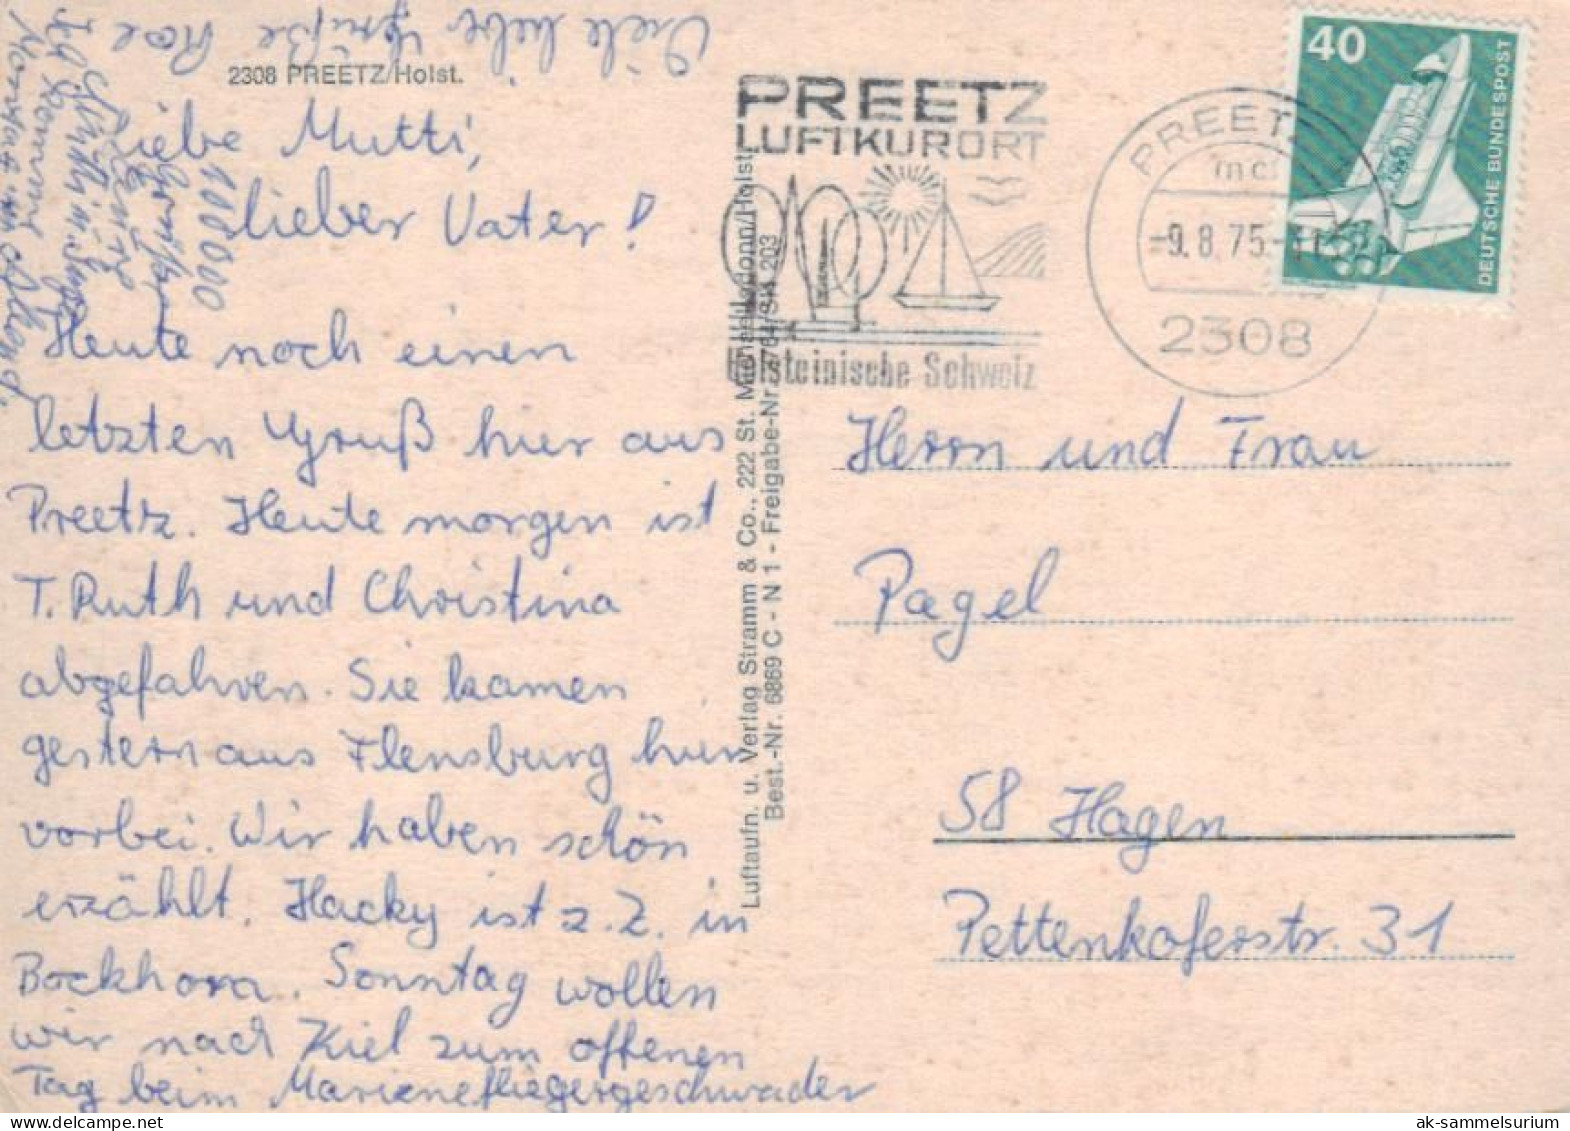 2308 PREETZ/Holst.
Liebe Mutti,
lieber Vater!
Heute noch einen
letzten Gruß hier aus
Preetz. Heute morgen ist
T. Ruth und Christina
abgefahren. Sie kamen
gestern aus Flensburg hier
vorbei. Wir haben schön
erzählt. Hacky ist z. Z. in
Bockhorn. Sonntag wollen
wir nach Kiel zum offenen
Tag beim Marienefliegergeschwader
Viele liebe Grüße
100000
Luftaufn. u. Verlag Stramm & Co., 222 St. Michaelisdonn/Holst
Best.-Nr. 6869 C - N 1 - Freigabe-Nr.
PREETZ
LUFTKURORT
Holsteinische Schweiz
PREETZ
-9.8.75-
2308
40
DEUTSCHE BUNDESPOST
Herrn und Frau
Pagel
58 Hagen
Pettenkoferstr. 31
ak-sammelsurium